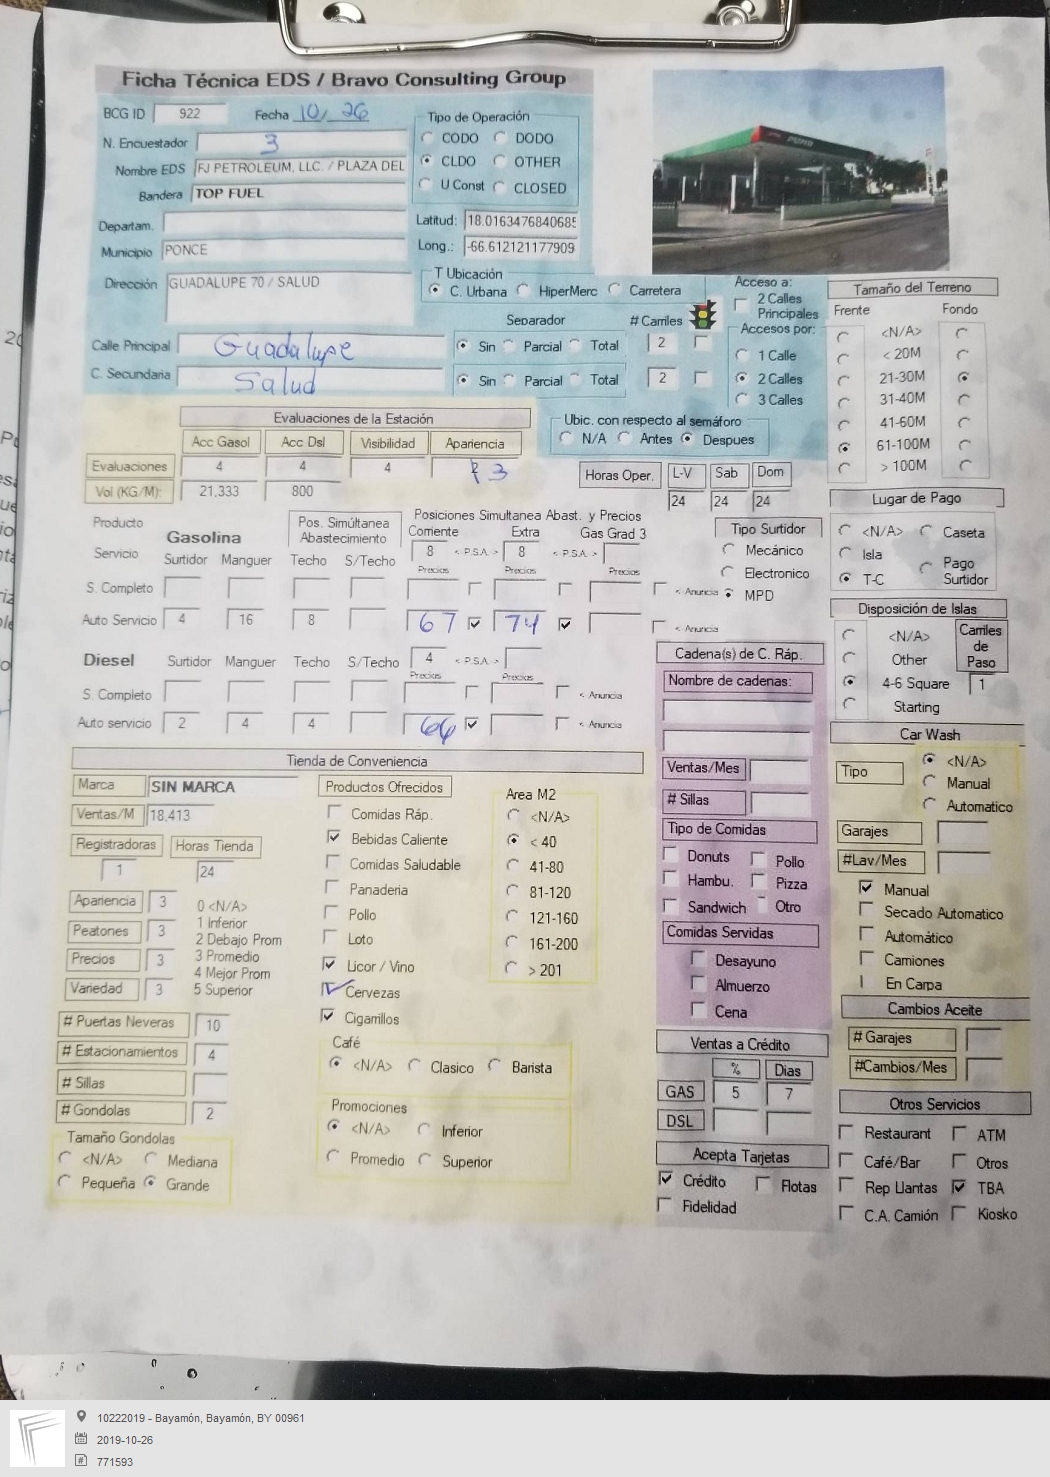 Ficha Técnica EDS / Bravo Consulting Group
BCG ID 922 Fecha 10/ 26
N. Encuestador 3
Nombre EDS FJ PETROLEUM, LLC. / PLAZA DEL
Bandera TOP FUEL
Departam.
Municipio PONCE
Dirección GUADALUPE 70 / SALUD
Tipo de Operación
CODO DODO
CLDO OTHER
U Const CLOSED
Latitud: 18.0163476840685
Long.: -66.612121177909
T Ubicación
C. Urbana HiperMerc Carretera
Separador # Carriles
Calle Principal Guadalupe Sin Parcial Total 2
C. Secundaria Salud Sin Parcial Total 2
Acceso a:
2 Calles Principales
Accesos por:
1 Calle
2 Calles
3 Calles
Ubic. con respecto al semáforo
N/A Antes Despues
Tamaño del Terreno
Frente Fondo
<N/A>
< 20M
21-30M
31-40M
41-60M
61-100M
> 100M
Evaluaciones de la Estación
Acc Gasol Acc Dsl Visibilidad Apariencia
Evaluaciones 4 4 4 3
Vol (KG/M): 21,333 800
Horas Oper. L-V Sab Dom
24 24 24
Producto Gasolina
Pos. Simúltanea Abastecimiento
Posiciones Simultanea Abast. y Precios
Corriente Extra Gas Grad 3
8 < P.S.A. > 8 < P.S.A. >
Servicio Surtidor Manguer Techo S/Techo Precios Precios Precios
S. Completo < Anuncia
Auto Servicio 4 16 8 67 74 < Anuncia
Tipo Surtidor
Mecánico
Electronico
MPD
Lugar de Pago
<N/A> Caseta
Isla
T-C Pago Surtidor
Diesel Surtidor Manguer Techo S/Techo 4 < P.S.A. >
Precios Precios
S. Completo < Anuncia
Auto servicio 2 4 4 66 < Anuncia
Disposición de Islas
<N/A>
Other
4-6 Square
Starting
Carriles de Paso
1
Cadena(s) de C. Ráp.
Nombre de cadenas:
Ventas/Mes
# Sillas
Tipo de Comidas
Donuts Pollo
Hambu. Pizza
Sandwich Otro
Comidas Servidas
Desayuno
Almuerzo
Cena
Car Wash
Tipo
<N/A>
Manual
Automatico
Garajes
#Lav/Mes
Manual
Secado Automatico
Automático
Camiones
En Carpa
Cambios Aceite
# Garajes
#Cambios/Mes
Tienda de Conveniencia
Marca SIN MARCA
Ventas/M 18,413
Registradoras Horas Tienda
1 24
Apariencia 3
Peatones 3
Precios 3
Variedad 3
0 <N/A>
1 Inferior
2 Debajo Prom
3 Promedio
4 Mejor Prom
5 Superior
# Puertas Neveras 10
# Estacionamientos 4
# Sillas
# Gondolas 2
Tamaño Gondolas
<N/A> Mediana
Pequeña Grande
Productos Ofrecidos
Comidas Ráp.
Bebidas Caliente
Comidas Saludable
Panaderia
Pollo
Loto
Licor / Vino
Cervezas
Cigarrillos
Area M2
<N/A>
< 40
41-80
81-120
121-160
161-200
> 201
Café
<N/A> Clasico Barista
Promociones
<N/A> Inferior
Promedio Superior
Ventas a Crédito
% Dias
GAS 5 7
DSL
Acepta Tarjetas
Crédito Flotas
Fidelidad
Otros Servicios
Restaurant ATM
Café/Bar Otros
Rep Llantas TBA
C.A. Camión Kiosko
10222019 - Bayamón, Bayamón, BY 00961
2019-10-26
771593